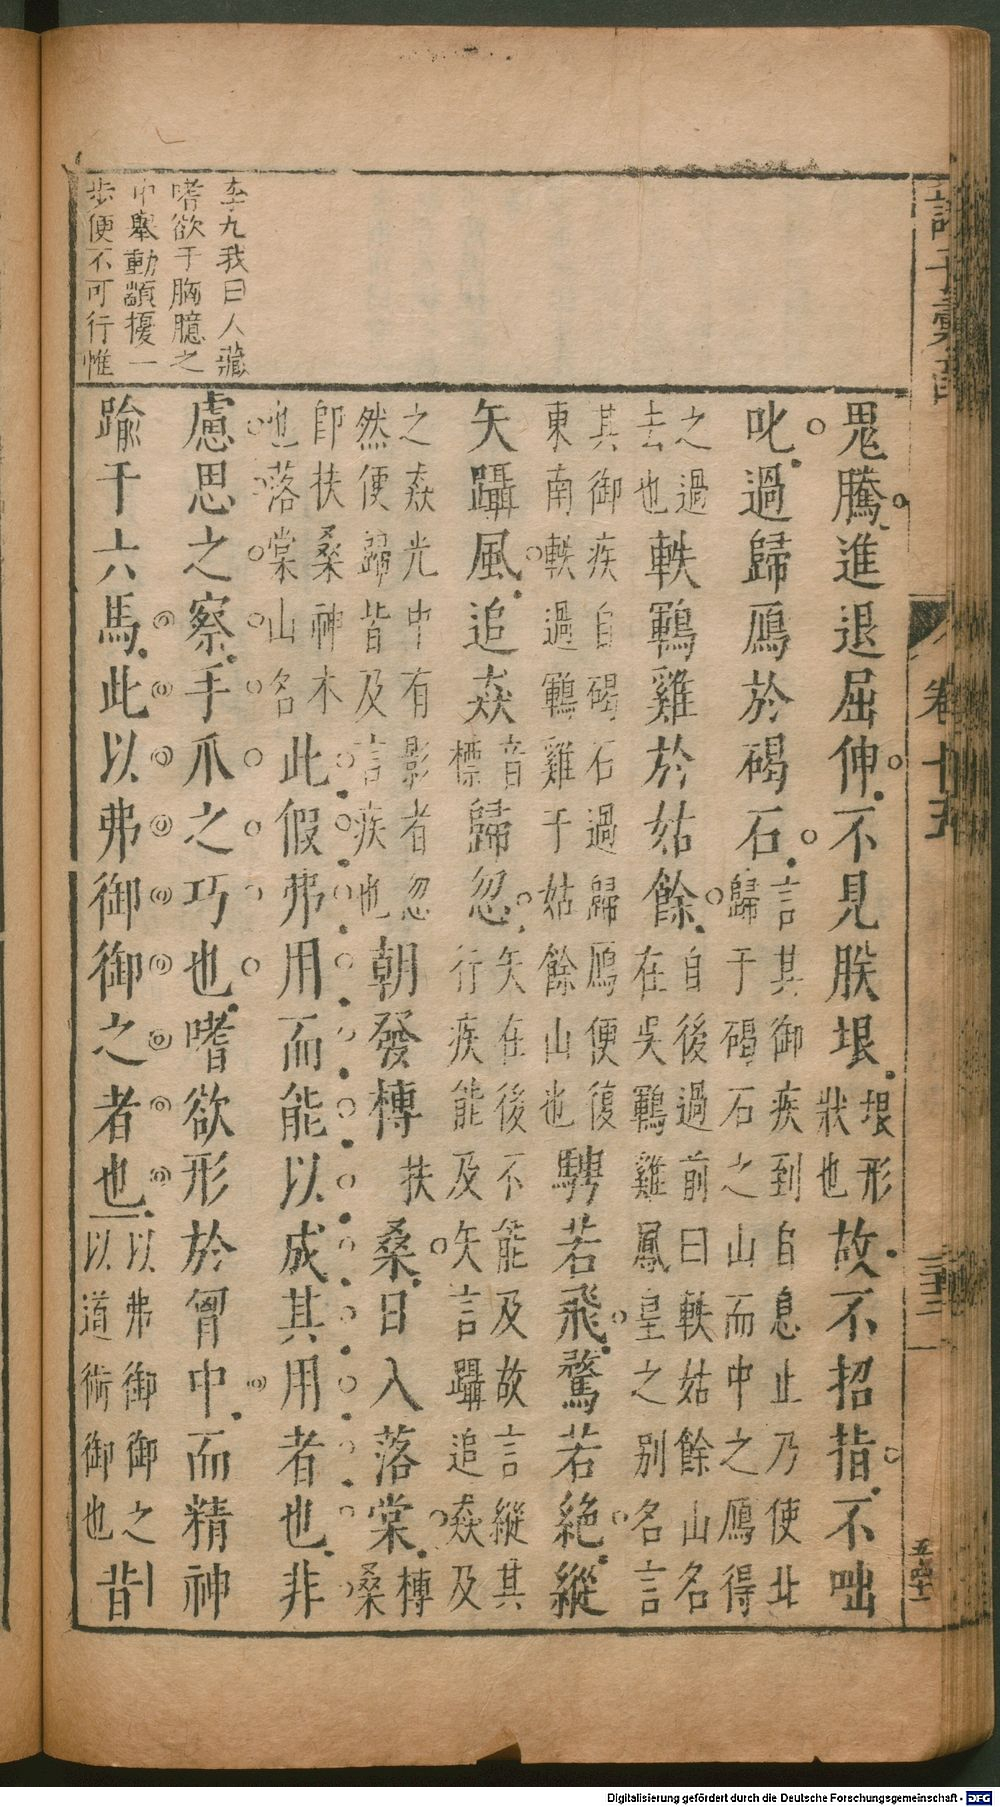 鬼騰進退屈伸不見朕垠垠形狀也故不招指不咄
叱過歸鴈於碣石言其御疾到自息止乃使北歸于碣石之山而中之鴈得
之過去也軼鶤雞於姑餘自後過前曰軼姑餘山名在吳鶤雞鳳皇之别名言
其御疾自碣石過歸鴈便復東南軼過鶤雞于姑餘山也騁若飛騖若絶縱
矢躡風追猋音標歸忽矢在後不能及故言縱其行疾能及矢言躡追猋及
之猋光中有影者忽然便歸皆及言疾也朝發榑扶桑日入落棠榑桑
即扶桑神木也落棠山名此假弗用而能以成其用者也非
慮思之察手爪之巧也嗜欲形於胷中而精神
踰于六馬此以弗御御之者也以弗御御之以道術御也昔
李九我曰人藏
嗜欲于胸臆之
中舉動顛擾一
步便不可行惟
卷十五
Digitalisierung gefördert durch die Deutsche Forschungsgemeinschaft - DFG